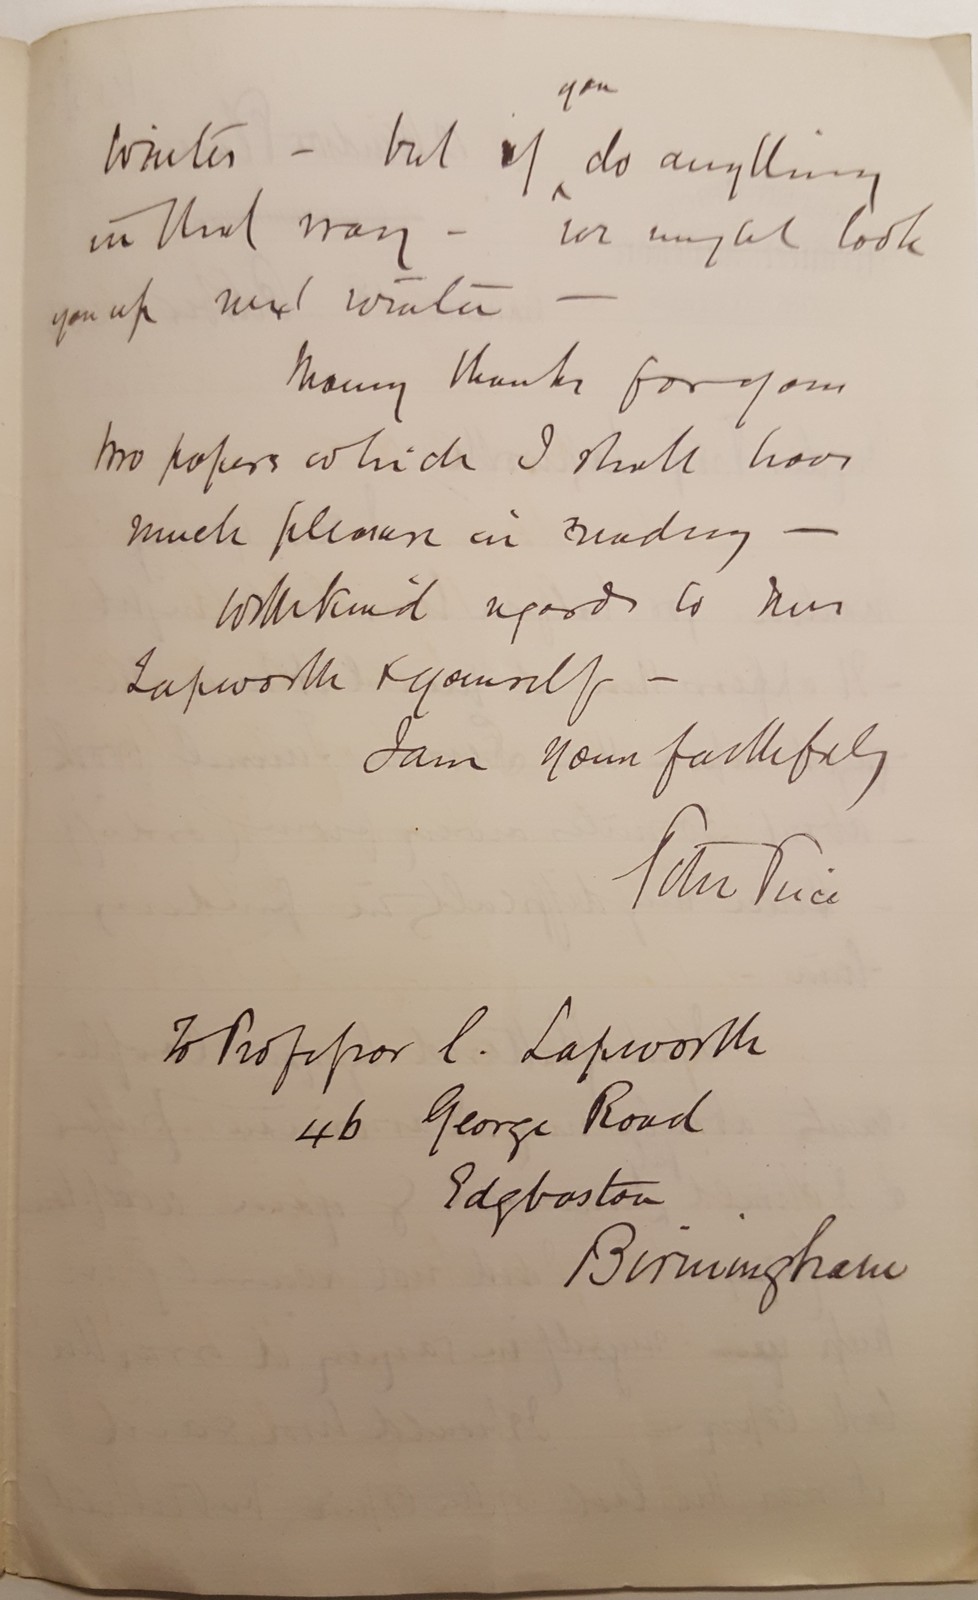 winter - but if ^you do anything
in that way - we might look
you up next winter —
Many thanks for your
two papers which I shall have
much pleasure in reading —
With kind regards to Mrs
Lapworth & yourself -
I am yours faithfully
Peter Price
To Professor C. Lapworth
46 George Road
Edgbaston
Birmingham